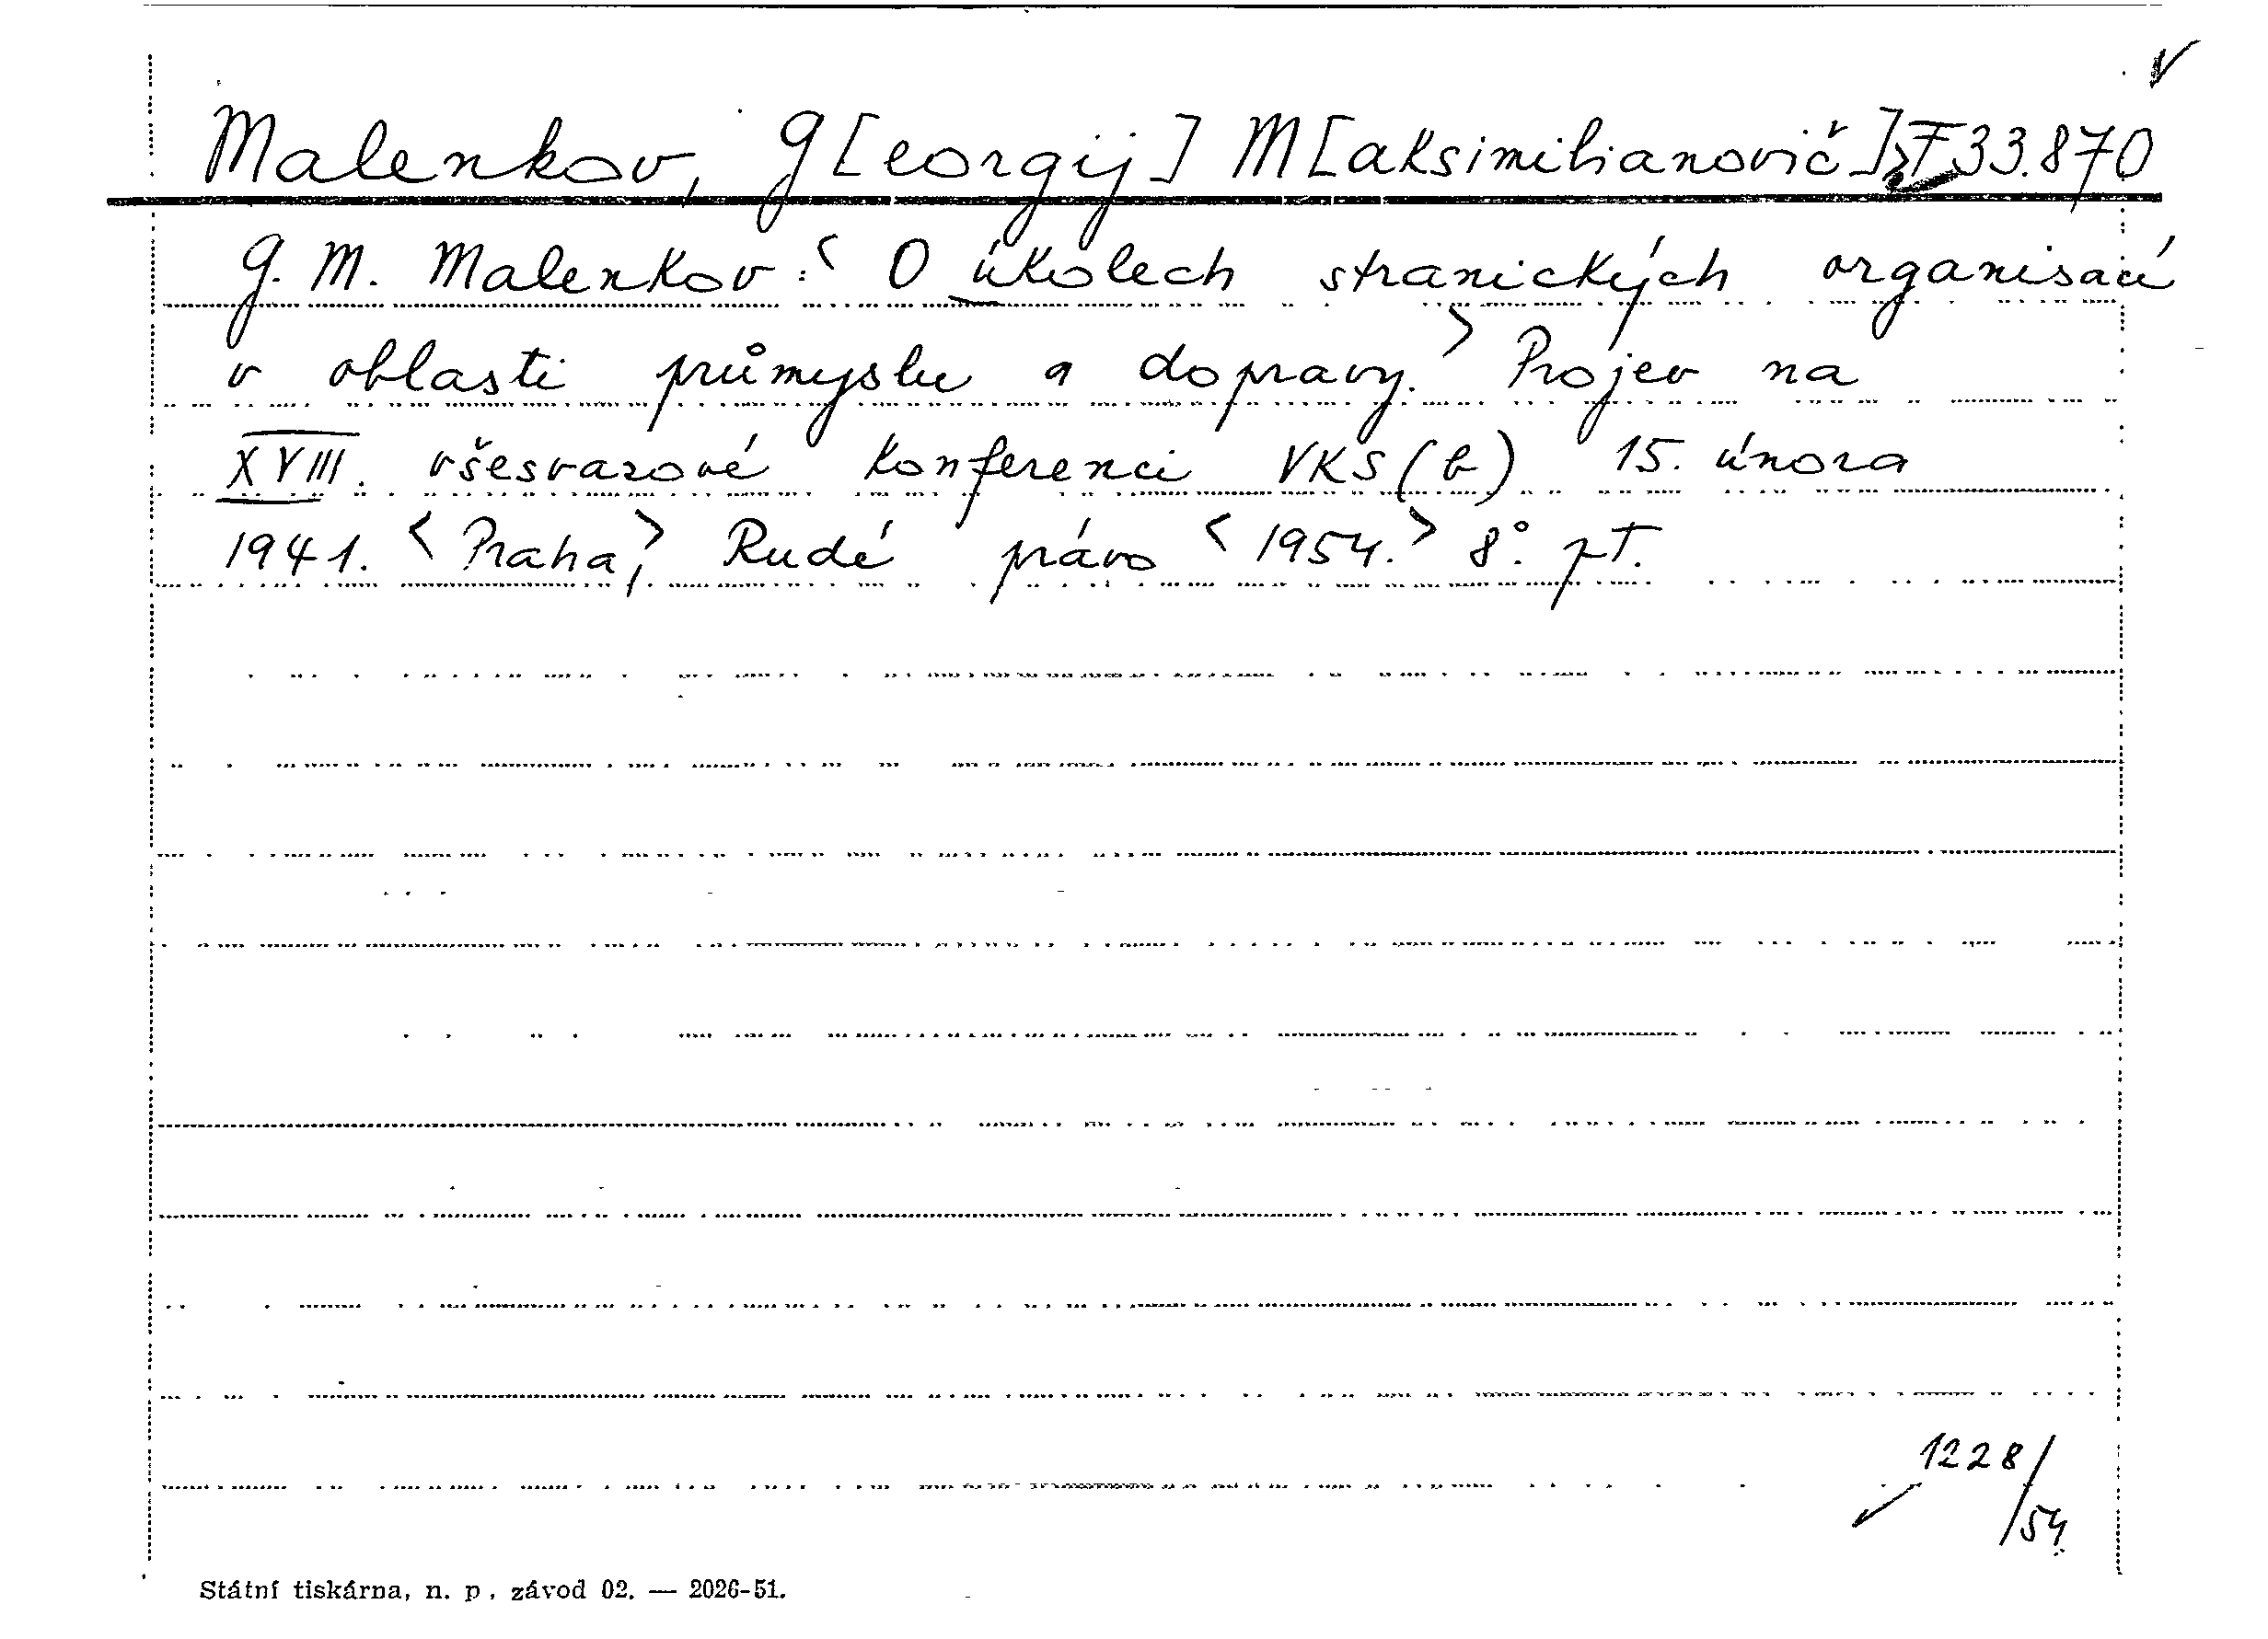 Malenkov, G[eorgij] M[aksimilianovič], F 33.870
G. M. Malenkov: < O úkolech stranických organisací
v oblasti průmyslu a dopravy.> Projev na
XVIII. všesvazové konferenci VKS(b) 15. února
1941. <Praha,> Rudé právo <1954.> 8°. pT.
1228/
/54
Státní tiskárna, n. p., závod 02. — 2026-51.